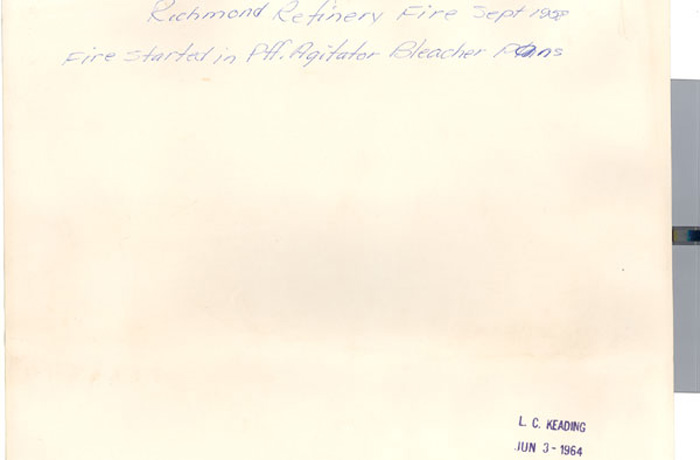 Richmond Refinery Fire Sept 1958
Fire Started in Pff. Agitator Bleacher Pans
L. C. KEADING
JUN 3-1964